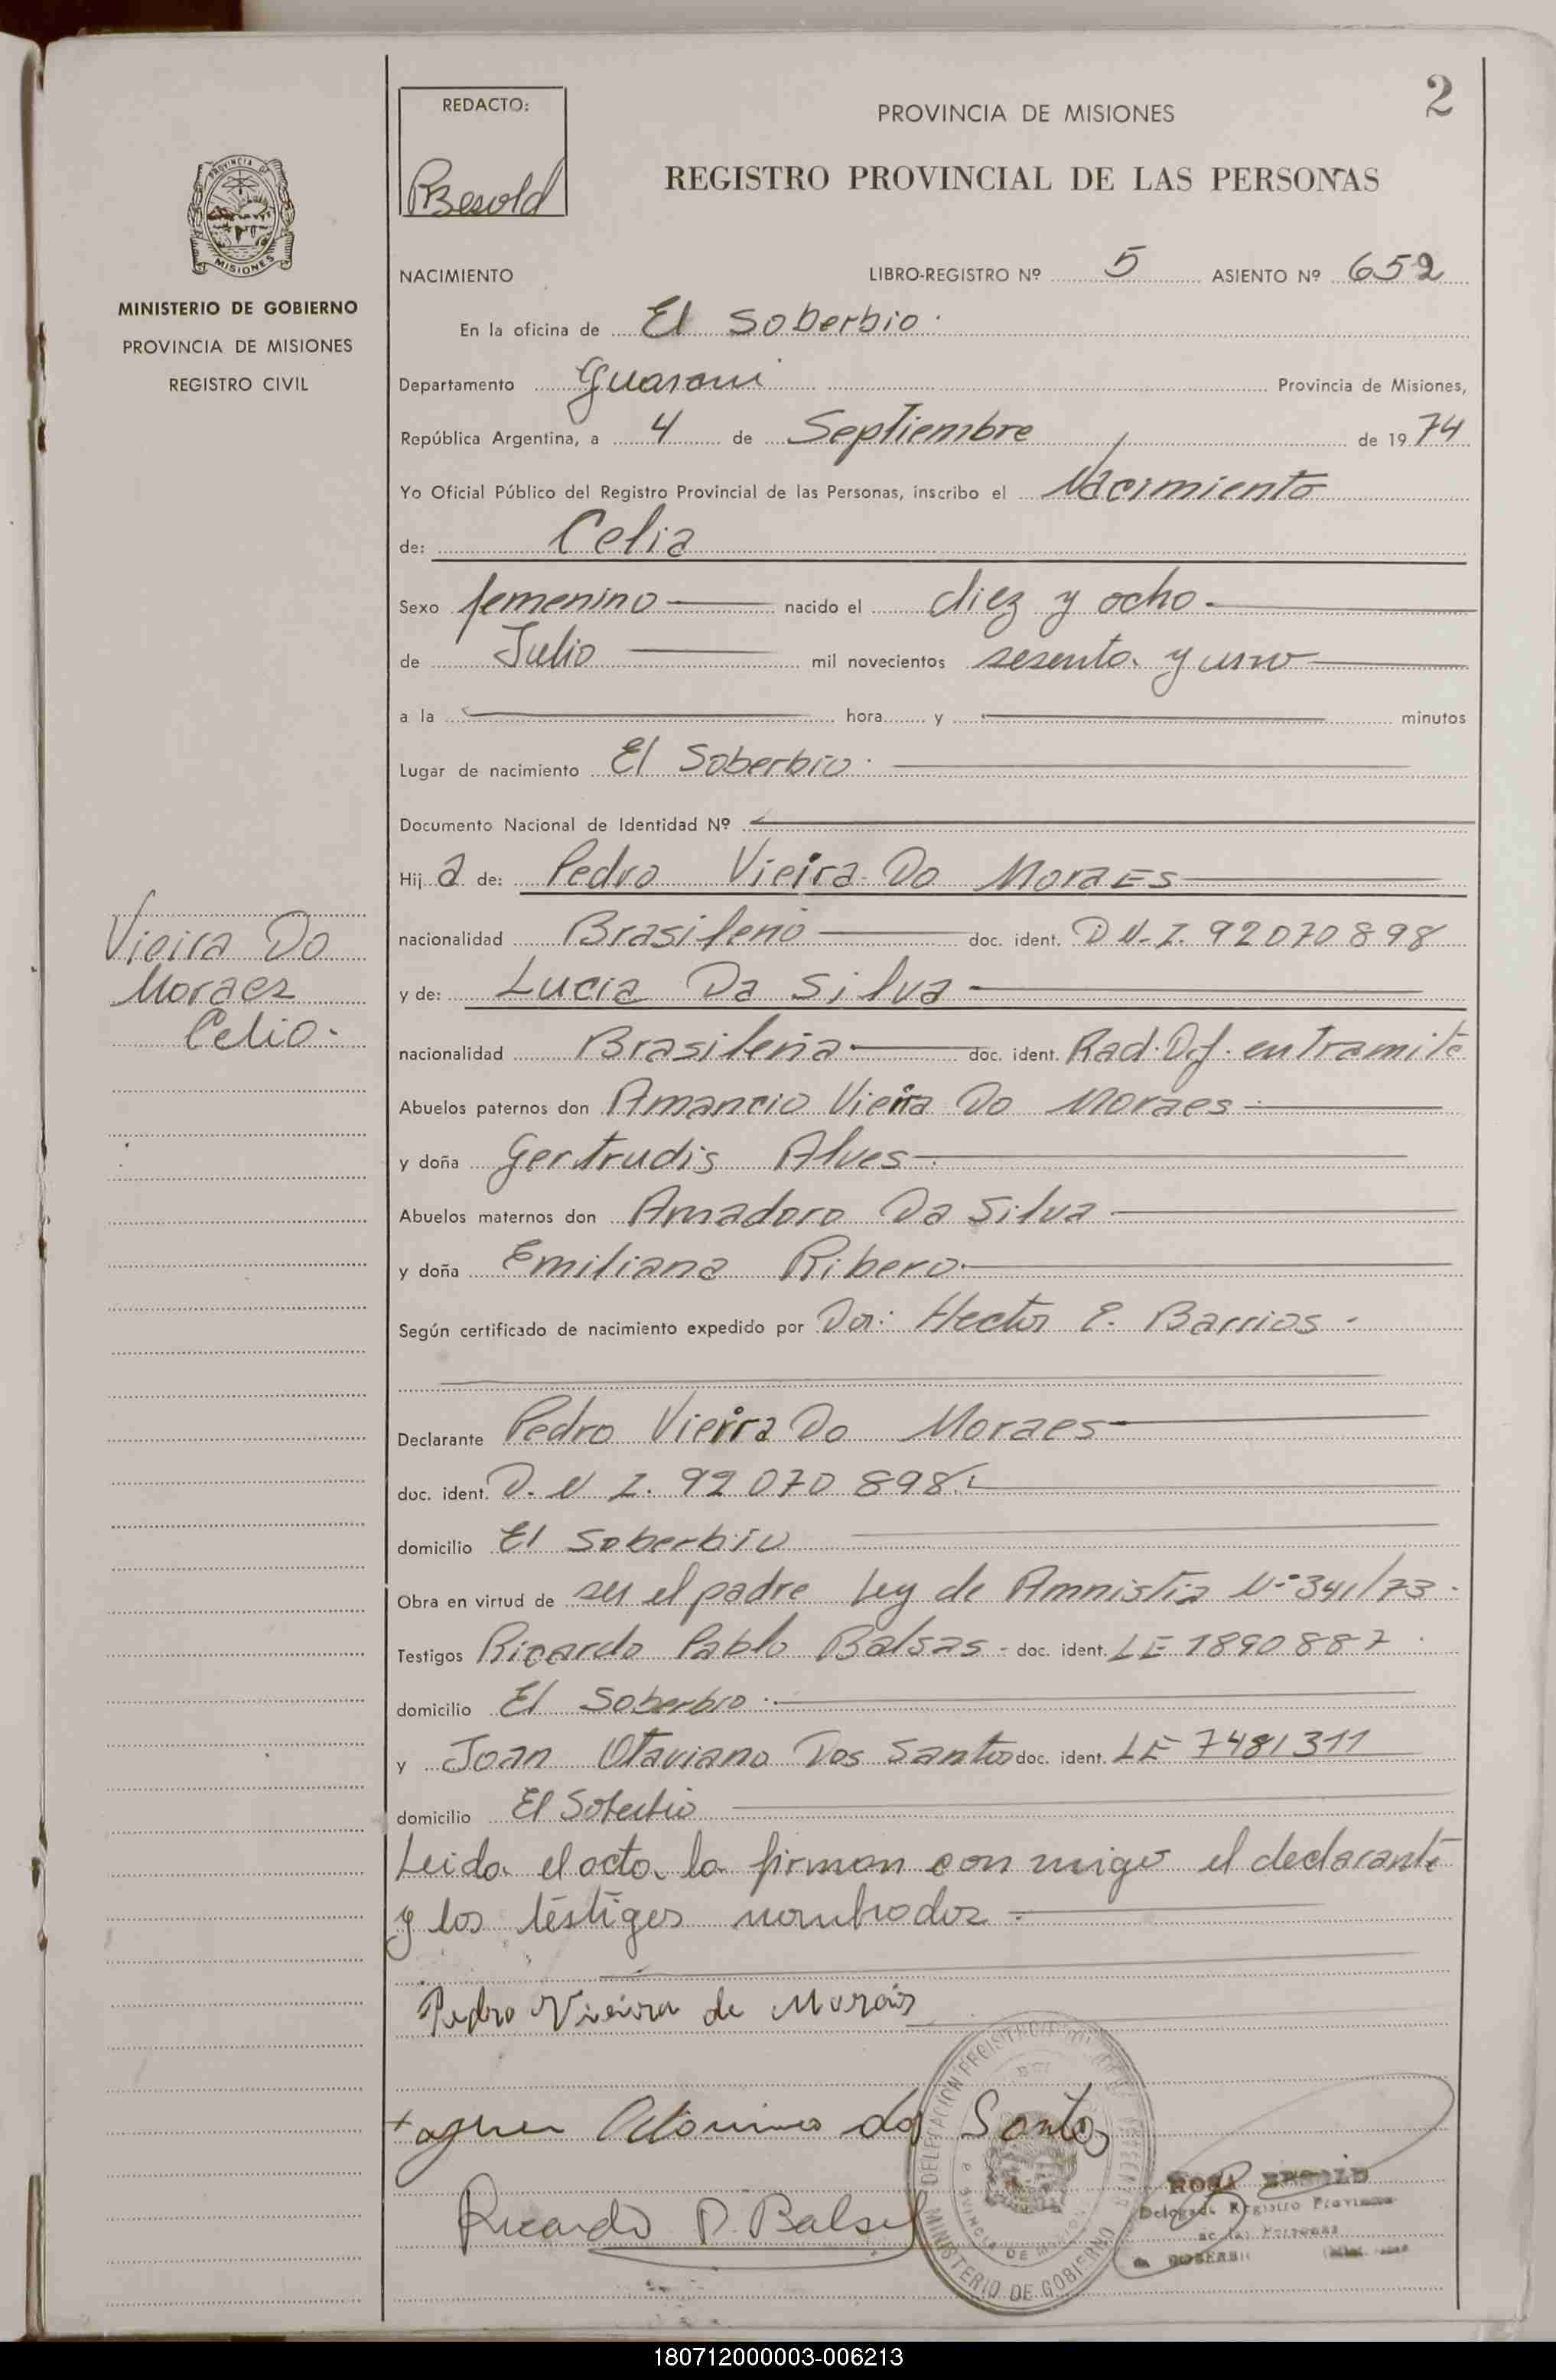 2
REDACTO:
RBesold
PROVINCIA DE MISIONES
REGISTRO PROVINCIAL DE LAS PERSONAS
PROVINCIA DE
MISIONES
MINISTERIO DE GOBIERNO
PROVINCIA DE MISIONES
REGISTRO CIVIL
NACIMIENTO LIBRO-REGISTRO Nº 5 ASIENTO Nº 652
En la oficina de El Soberbio.
Departamento Guarani Provincia de Misiones,
República Argentina, a 4 de Septiembre de 1974
Yo Oficial Público del Registro Provincial de las Personas, inscribo el Nacimiento
de: Celia
Sexo femenino nacido el diez y ocho
de Julio mil novecientos sesenta y uno
a la hora y minutos
Lugar de nacimiento El Soberbio.
Documento Nacional de Identidad Nº
Hij a de: Pedro Vieira Do Moraes
Vieira Do
Moraes
Celia.
nacionalidad Brasileño doc. ident. D.N.I. 92070898
y de: Lucia Da Silva
nacionalidad Brasileña doc. ident. Rad. Def. en Tramite
Abuelos paternos don Amancio Vieira Do Moraes
y doña Gertrudis Alves
Abuelos maternos don Amadoro Da Silva
y doña Emiliana Ribero
Según certificado de nacimiento expedido por Dor: Hector E. Barrios.
Declarante Pedro Vieira Do Moraes
doc. ident. D.N.I. 92070898.
domicilio El Soberbio
Obra en virtud de ser el padre Ley de Amnistia Nº 341/73.
Testigos Ricardo Pablo Balsas - doc. ident. LE 1890887.
domicilio El Soberbio.
y Joan Otaviano Dos Santos doc. ident. LE 7481311
domicilio El Soberbio
Leida el acta la firman con migo el declarante
y los testiges nombrados
Pedro Vieira de Morais
dos Santos
Ricardo P. Balsas
MINISTERIO DE GOBIERNO
ROSA BESOLD
Delegada Registro Provincial
de las Personas
180712000003-006213